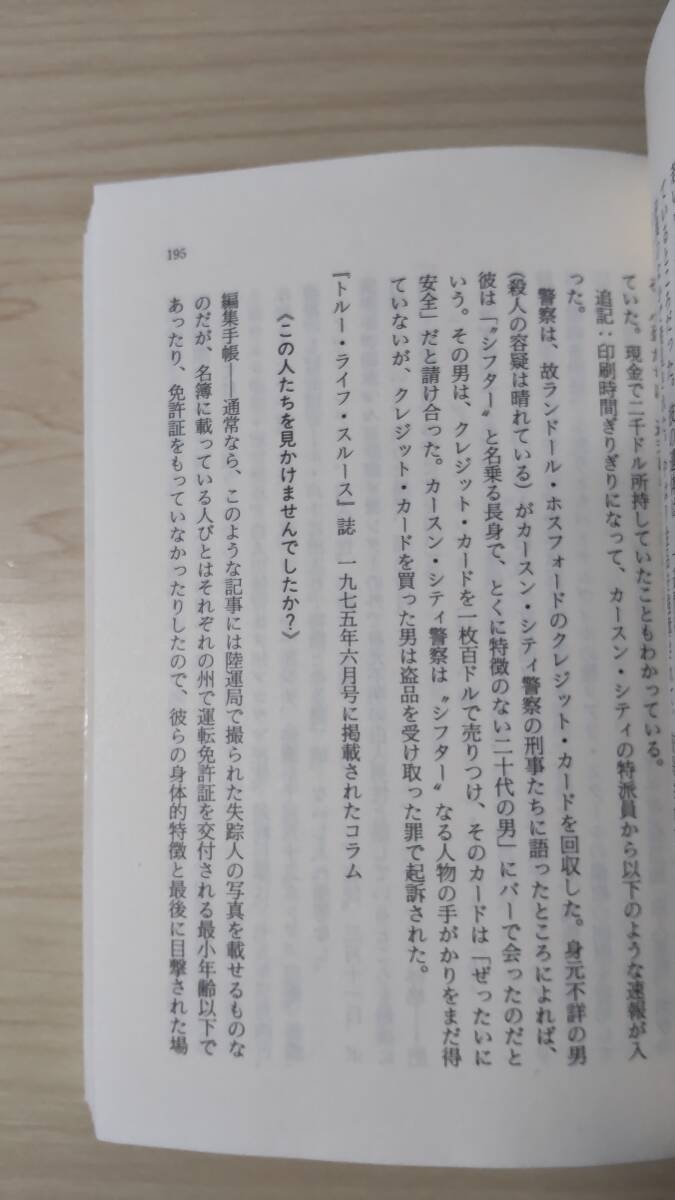 ていた。現金で二千ドル所持していたこともわかっている。
追記：印刷時間ぎりぎりになって、カースン・シティの特派員から以下のような速報が入
った。
警察は、故ランドール・ホスフォードのクレジット・カードを回収した。身元不詳の男
(殺人の容疑は晴れている)がカースン・シティ警察の刑事たちに語ったところによれば、
彼は「〝シフター〟と名乗る長身で、とくに特徴のない二十代の男」にバーで会ったのだと
いう。その男は、クレジット・カードを一枚百ドルで売りつけ、そのカードは「ぜったいに
安全」だと請け合った。カースン・シティ警察は〝シフター〟なる人物の手がかりをまだ得
ていないが、クレジット・カードを買った男は盗品を受け取った罪で起訴された。
『トルー・ライフ・スルース』誌　一九七五年六月号に掲載されたコラム
《この人たちを見かけませんでしたか？》
編集手帳――通常なら、このような記事には陸運局で撮られた失踪人の写真を載せるものな
のだが、名簿に載っている人びとはそれぞれの州で運転免許証を交付される最小年齢以下で
あったり、免許証をもっていなかったりしたので、彼らの身体的特徴と最後に目撃された場
195